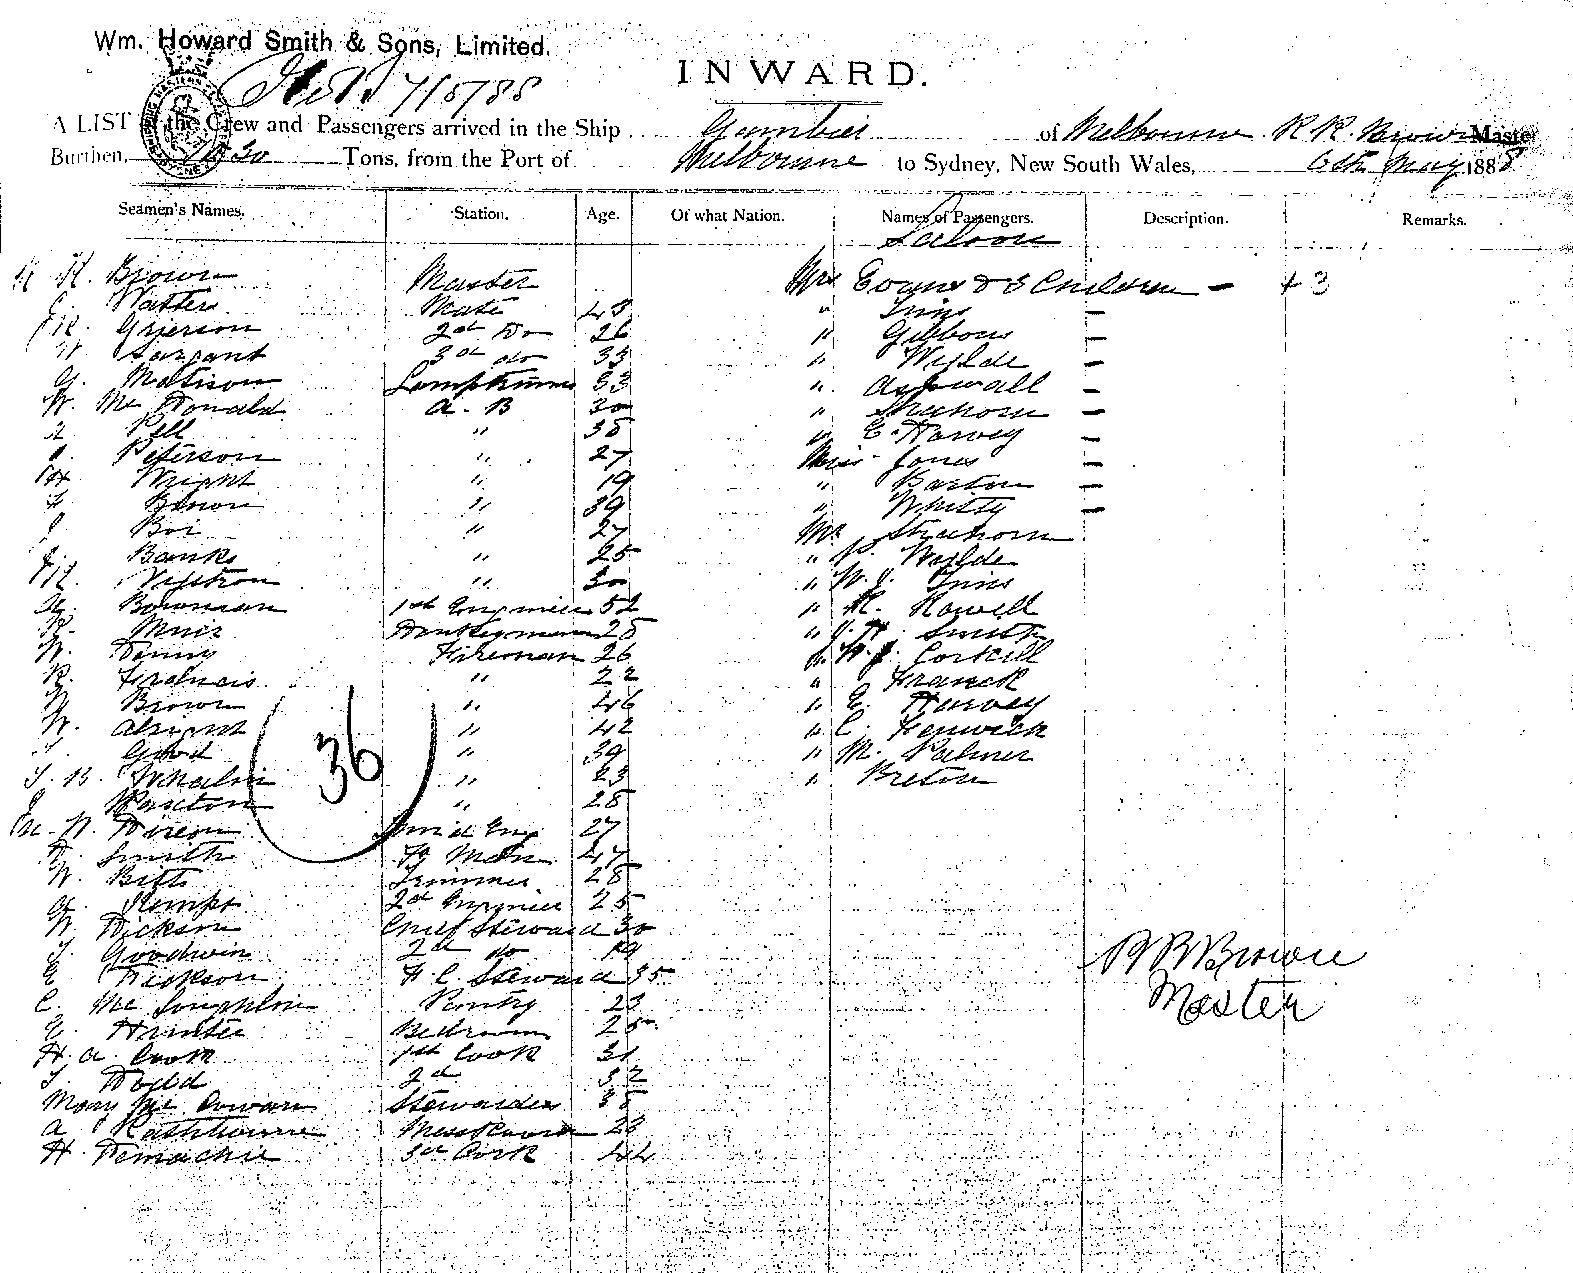 Wm. Howard Smith & Sons, Limited.
7/5/88
INWARD.
A LIST of the Crew and Passengers arrived in the Ship Gambier of Melbourne R R. Brown Master
Burthen, Tons, from the Port of Melbourne to Sydney, New South Wales, 6th May 1888
Seamen's Names. Station. Age. Of what Nation. Names of Passengers. Description. Remarks.
Saloon
R R. Brown Master Mrs Evans & 3 Children - + 3
Watters Mate 43 " Inns -
Grierson 2nd Do 26 " Gibbons -
Sargant 3rd do 33 " Wylde -
G. Matison Lamptrimmer 33 " Aspinall -
W. Mc Donald A. B 30 " Strachorn -
Pell " 38 " E. Harvey -
Peterson " 27 Miss Jones -
Wright " 19 " Barton -
" 39 " Whitty -
Boi " 27 Mr Strachorn
Banks " 25 " Wylde
" 30 " W. J. Inns
Bowman 1st Engineer 52 " R. Rowell
R. Muir Donkeyman 28 " J. H. Smith
W. Denny Fireman 26 " Corkill
R. Francis " 22 " Franck
W. Brown " 46 " E. Harvey
W. " 42 " C. Fenwick
Good " 39 " M. Palmer
J. B. " 23 " Breton
" 28
36
W. Dixon 27
Smith 47
W. Bitts Trimmer 28
Kemps 2nd Engineer 25
W. Dickson Chief Steward 30
T. Goodwin 2nd do 19
E Dickson F C Steward 35
C. Mc Loughlin Pantry 23
E. Hunter Bedroom 25
H. A. Cook 1st Cook 31
T. Dodd 2nd 32
Mary Mc Cowan Stewardess 38
A Rathbourne Messroom 23
H 3rd Cook 44
R R Brown
Master